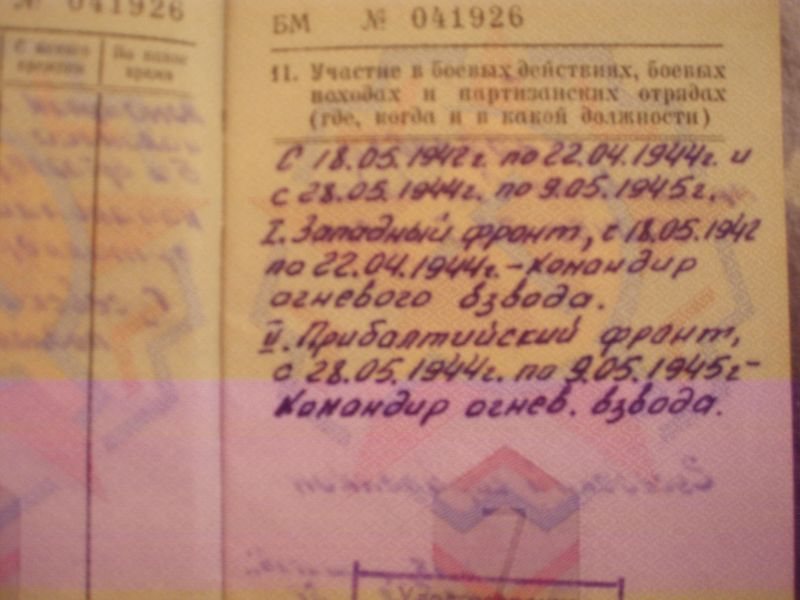 № 041926
С какого
времени
По какое
время
БМ № 041926
11. Участие в боевых действиях, боевых
походах и партизанских отрядах
(где, когда и в какой должности)
С 18.05.1942г. по 22.04.1944г. и
с 28.05.1944г. по 9.05.1945г.
I. Западный фронт, с 18.05.1942
по 22.04.1944г. - Командир
огневого взвода.
II. Прибалтийский фронт,
с 28.05.1944г. по 9.05.1945г -
Командир огнев. взвода.